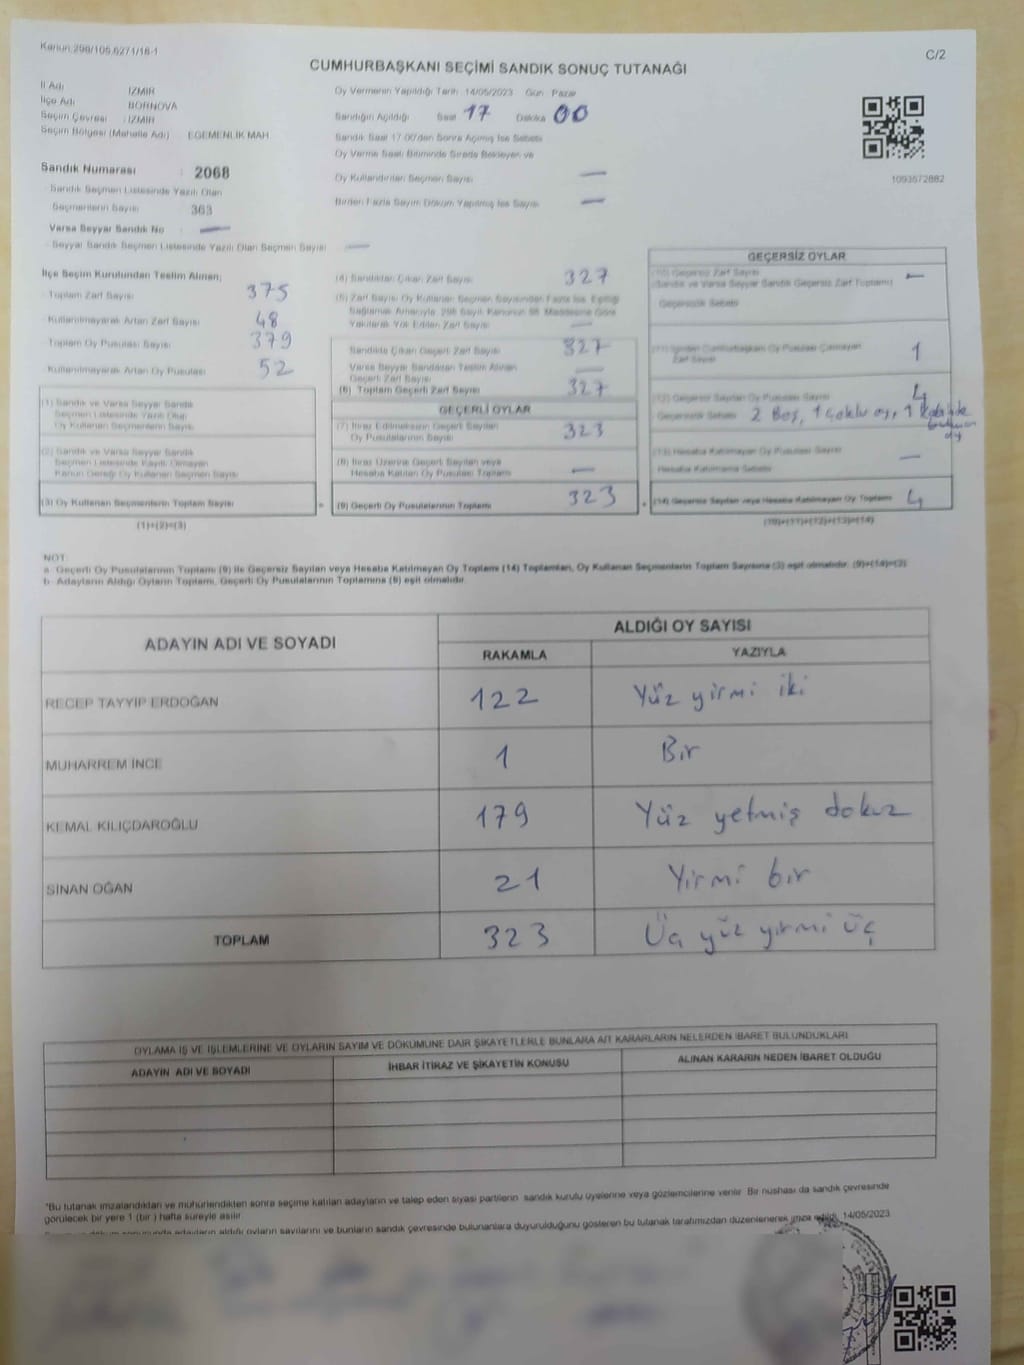 Kanun:298/105,6271/16-1
C/2
CUMHURBAŞKANI SEÇİMİ SANDIK SONUÇ TUTANAĞI
İl Adı İZMİR
İlçe Adı BORNOVA
Seçim Çevresi : İZMİR
Seçim Bölgesi (Mahalle Adı) EGEMENLİK MAH
Sandık Numarası : 2068
Sandık Seçmen Listesinde Yazılı Olan
Seçmenlerin Sayısı 363
Varsa Seyyar Sandık No —
Seyyar Sandık Seçmen Listesinde Yazılı Olan Seçmen Sayısı —
Oy Vermenin Yapıldığı Tarih 14/05/2023 Gün Pazar
Sandığın Açıldığı Saat 17 Dakika 00
Sandık Saat 17:00'den Sonra Açılmış İse Sebebi
Oy Verme Saati Bitiminde Sırada Bekleyen ve
Oy Kullandırılan Seçmen Sayısı —
Birden Fazla Sayım Döküm Yapılmış İse Sayısı —
1093572882
İlçe Seçim Kurulundan Teslim Alınan;
Toplam Zarf Sayısı 375
Kullanılmayarak Artan Zarf Sayısı 48
Toplam Oy Pusulası Sayısı 379
Kullanılmayarak Artan Oy Pusulası 52
(1) Sandık ve Varsa Seyyar Sandık
Seçmen Listesinde Yazılı Olup
Oy Kullanan Seçmenlerin Sayısı
(2) Sandık ve Varsa Seyyar Sandık
Seçmen Listesinde Kayıtlı Olmayan
Kanun Gereği Oy Kullanan Seçmen Sayısı
(3) Oy Kullanan Seçmenlerin Toplam Sayısı
(1)+(2)=(3)
(4) Sandıktan Çıkan Zarf Sayısı 327
(5) Zarf Sayısı Oy Kullanan Seçmen Sayısından Fazla İse, Eşitliği
Sağlamak Amacıyla, 298 Sayılı Kanunun 98. Maddesine Göre
Yakılarak Yok Edilen Zarf Sayısı —
Sandıkta Çıkan Geçerli Zarf Sayısı 327
Varsa Seyyar Sandıktan Teslim Alınan
Geçerli Zarf Sayısı —
(6) Toplam Geçerli Zarf Sayısı 327
GEÇERLİ OYLAR
(7) İtiraz Edilmeksizin Geçerli Sayılan
Oy Pusulalarının Sayısı 323
(8) İtiraz Üzerine Geçerli Sayılan veya
Hesaba Katılan Oy Pusulası Toplamı —
= (9) Geçerli Oy Pusulalarının Toplamı 323
GEÇERSİZ OYLAR
(10) Geçersiz Zarf Sayısı —
(Sandık ve Varsa Seyyar Sandık Geçersiz Zarf Toplamı)
Geçersizlik Sebebi
(11) İçinden Cumhurbaşkanı Oy Pusulası Çıkmayan
Zarf Sayısı 1
(12) Geçersiz Sayılan Oy Pusulası Sayısı 4
Geçersizlik Sebebi 2 Boş, 1 çoklu oy, 1
oy
(13) Hesaba Katılmayan Oy Pusulası Sayısı —
Hesaba Katılmama Sebebi
+ (14) Geçersiz Sayılan veya Hesaba Katılmayan Oy Toplamı 4
(10)+(11)+(12)+(13)=(14)
NOT:
a- Geçerli Oy Pusulalarının Toplamı (9) ile Geçersiz Sayılan veya Hesaba Katılmayan Oy Toplamı (14) Toplamları, Oy Kullanan Seçmenlerin Toplam Sayısına (3) eşit olmalıdır. (9)+(14)=(3)
b- Adayların Aldığı Oyların Toplamı, Geçerli Oy Pusulalarının Toplamına (9) eşit olmalıdır.
ADAYIN ADI VE SOYADI ALDIĞI OY SAYISI
RAKAMLA YAZIYLA
RECEP TAYYİP ERDOĞAN 122 Yüz yirmi iki
MUHARREM İNCE 1 Bir
KEMAL KILIÇDAROĞLU 179 Yüz yetmiş dokuz
SİNAN OĞAN 21 Yirmi bir
TOPLAM 323 Üç yüz yirmi üç
OYLAMA İŞ VE İŞLEMLERİNE VE OYLARIN SAYIM VE DÖKÜMÜNE DAİR ŞİKAYETLERLE BUNLARA AİT KARARLARIN NELERDEN İBARET BULUNDUKLARI
ADAYIN ADI VE SOYADI İHBAR İTİRAZ VE ŞİKAYETİN KONUSU ALINAN KARARIN NEDEN İBARET OLDUĞU
*Bu tutanak imzalandıktan ve mühürlendikten sonra seçime katılan adayların ve talep eden siyasi partilerin sandık kurulu üyelerine veya gözlemcilerine verilir. Bir nüshası da sandık çevresinde
görülecek bir yere 1 (bir) hafta süreyle asılır.
adayların aldığı oyların sayılarını ve bunların sandık çevresinde bulunanlara duyurulduğunu gösteren bu tutanak tarafımızdan düzenlenerek imza edildi. 14/05/2023